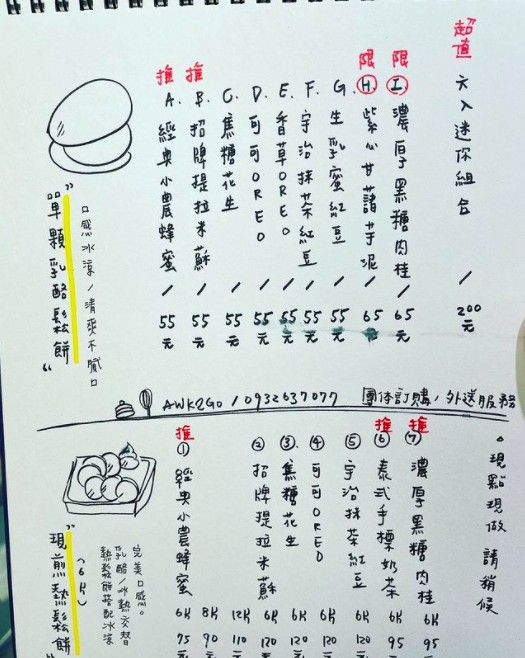 ”單顆乳酪鬆餅“
口感冰涼/清爽不膩口
推 A. 經典小農蜂蜜 / 55元
推 B. 招牌提拉米蘇 / 55元
C. 焦糖花生 / 55元
D. 可可OREO / 55元
E. 香草OREO / 55元
F. 宇治抹茶紅豆 / 55元
G. 生乳蜜紅豆 / 55元
限 H. 紫心甘藷芋泥 / 65元
限 I. 濃厚黑糖肉桂 / 65元
超值 六入迷你組合 / 200元
AWK2Go / 0932637077 團体訂購/外送服務
”現煎熱鬆餅“
(6片)
完美口感。
乳酪/冰熱交替
熱鬆餅搭配冰涼
推 ① 經典小農蜂蜜 6片 75元 8片 90元 12片 110元
② 招牌提拉米蘇 6片 120元
③ 焦糖花生 6片 120元
④ 可可OREO 6片 120元
⑤ 宇治抹茶紅豆 6片 120元
推 ⑥ 泰式手標奶茶 6片 95元
推 ⑦ 濃厚黑糖肉桂 6片 95元
。現點現做 請稍候